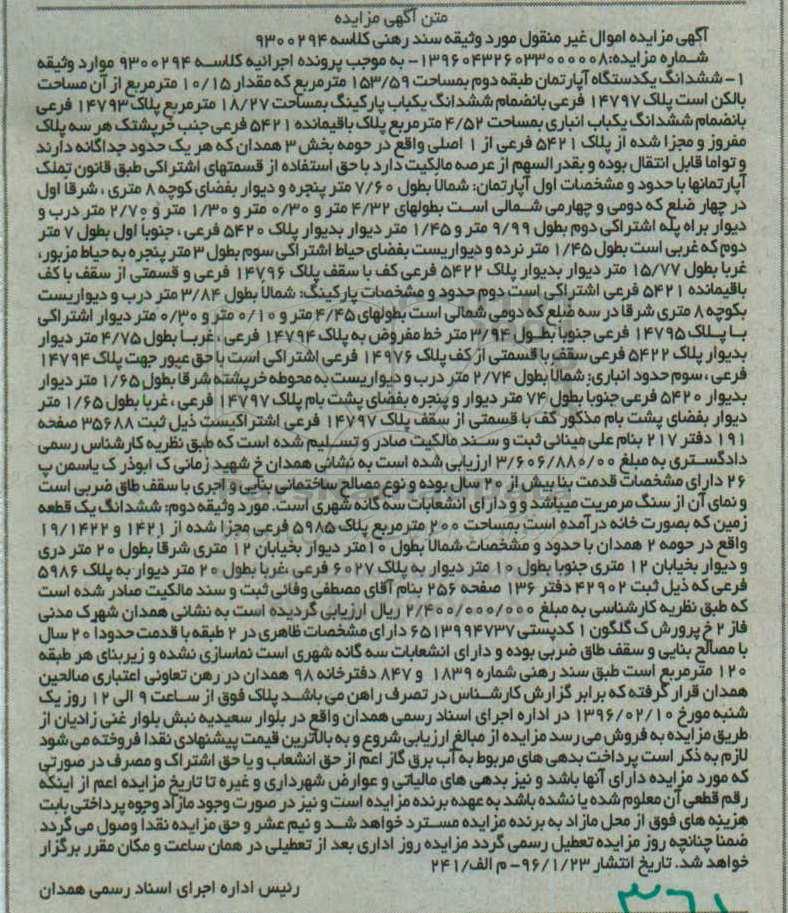 متن آگهی مزایده
آگهی مزایده اموال غیر منقول مورد وثیقه سند رهنی کلاسه ۹۳۰۰۲۹۴
شماره مزایده:۱۳۹۶۰۴۳۲۶۰۳۳۰۰۰۰۰۸- به موجب پرونده اجرائیه کلاسه ۹۳۰۰۲۹۴ موارد وثیقه
۱- ششدانگ یکدستگاه آپارتمان طبقه دوم بمساحت ۱۵۳/۵۹ مترمربع که مقدار ۱۰/۱۵ مترمربع از آن مساحت
بالکن است پلاک ۱۴۷۹۷ فرعی بانضمام ششدانگ یکباب پارکینگ بمساحت ۱۸/۲۷ مترمربع پلاک ۱۴۷۹۳ فرعی
بانضمام ششدانگ یکباب انباری بمساحت ۴/۵۲ مترمربع پلاک باقیمانده ۵۴۲۱ فرعی جنب خرپشتک هر سه پلاک
مفروز و مجزا شده از پلاک ۵۴۲۱ فرعی از ۱ اصلی واقع در حومه بخش ۳ همدان که هر یک حدود جداگانه دارند
و تواما قابل انتقال بوده و بقدر السهم از عرصه مالکیت دارد با حق استفاده از قسمتهای اشتراکی طبق قانون تملک
آپارتمانها با حدود و مشخصات اول آپارتمان: شمالاً بطول ۷/۶۰ متر پنجره و دیوار بفضای کوچه ۸ متری ، شرقا اول
در چهار ضلع که دومی و چهارمی شمالی است بطولهای ۴/۳۲ متر و ۰/۳۰ متر و ۱/۳۰ متر و ۲/۷۰ متر درب و
دیوار براه پله اشتراکی دوم بطول ۹/۹۹ متر و ۱/۴۵ متر دیوار بدیوار پلاک ۵۴۲۰ فرعی ، جنوباً اول بطول ۷ متر
دوم که غربی است بطول ۱/۴۵ متر نرده و دیواریست بفضای حیاط اشتراکی سوم بطول ۳ متر پنجره به حیاط مزبور،
غربا بطول ۱۵/۷۷ متر دیوار بدیوار پلاک ۵۴۲۲ فرعی کف با سقف پلاک ۱۴۷۹۶ فرعی و قسمتی از سقف با کف
باقیمانده ۵۴۲۱ فرعی اشتراکی است دوم حدود و مشخصات پارکینگ: شمالاً بطول ۳/۸۴ متر درب و دیواریست
بکوچه ۸ متری شرقا در سه ضلع که دومی شمالی است بطولهای ۴/۴۵ متر و ۰/۱۰ متر و ۰/۳۰ متر دیوار اشتراکی
با پلاک ۱۴۷۹۵ فرعی جنوباً بطول ۳/۹۴ متر خط مفروض به پلاک ۱۴۷۹۴ فرعی ، غربا بطول ۴/۷۵ متر دیوار
بدیوار پلاک ۵۴۲۲ فرعی سقف با قسمتی از کف پلاک ۱۴۹۷۶ فرعی اشتراکی است با حق عبور جهت پلاک ۱۴۷۹۴
فرعی ، سوم حدود انباری: شمالاً بطول ۲/۷۴ متر درب و دیواریست به محوطه خرپشته شرقا بطول ۱/۶۵ متر دیوار
بدیوار ۵۴۲۰ فرعی جنوباً بطول ۷۴ متر دیوار و پنجره بفضای پشت بام پلاک ۱۴۷۹۷ فرعی ، غربا بطول ۱/۶۵ متر
دیوار بفضای پشت بام مذکور کف با قسمتی از سقف پلاک ۱۴۷۹۷ فرعی اشتراکیست ذیل ثبت ۳۵۶۸۸ صفحه
۱۹۱ دفتر ۲۱۷ بنام علی مینائی ثبت و سند مالکیت صادر و تسلیم شده است که طبق نظریه کارشناس رسمی
دادگستری به مبلغ ۳/۶۰۶/۸۸۰/۰۰ ارزیابی شده است به نشانی همدان خ شهید زمانی ک ابوذر ک یاسمن پ
۲۶ دارای مشخصات قدمت بنا بیش از ۲۰ سال بوده و نوع مصالح ساختمانی بنایی و اجری با سقف طاق ضربی است
و نمای آن از سنگ مرمریت میباشد و و دارای انشعابات سه گانه شهری است. مورد وثیقه دوم: ششدانگ یک قطعه
زمین که بصورت خانه درآمده است بمساحت ۲۰۰ مترمربع پلاک ۵۹۸۵ فرعی مجزا شده از ۱۴۲۱ و ۱۹/۱۴۲۲
واقع در حومه ۲ همدان با حدود و مشخصات شمالاً بطول ۱۰متر دیوار بخیابان ۱۲ متری شرقاً بطول ۲۰ متر دری
و دیوار بخیابان ۱۲ متری جنوباً بطول ۱۰ متر دیوار به پلاک ۶۰۲۷ فرعی ،غربا بطول ۲۰ متر دیوار به پلاک ۵۹۸۶
فرعی که ذیل ثبت ۴۲۹۰۲ دفتر ۱۳۶ صفحه ۲۵۶ بنام آقای مصطفی وفائی ثبت و سند مالکیت صادر شده است
که طبق نظریه کارشناسی به مبلغ ۲/۴۰۰/۰۰۰/۰۰۰ ریال ارزیابی گردیده است به نشانی همدان شهرک مدنی
فاز ۲ خ پرورش ک گلگون ۱ کدپستی ۶۵۱۳۹۹۴۷۳۷ دارای مشخصات ظاهری در ۲ طبقه با قدمت حدودا ۲۰ سال
با مصالح بنایی و سقف طاق ضربی بوده و دارای انشعابات سه گانه شهری است نماسازی نشده و زیربنای هر طبقه
۱۲۰ مترمربع است طبق سند رهنی شماره ۱۸۳۹ و ۸۴۷ دفترخانه ۹۸ همدان در رهن تعاونی اعتباری صالحین
همدان قرار گرفته که برابر گزارش کارشناس در تصرف راهن می باشد پلاک فوق از ساعت ۹ الی ۱۲ روز یک
شنبه مورخ ۱۳۹۶/۰۲/۱۰ در اداره اجرای اسناد رسمی همدان واقع در بلوار سعیدیه نبش بلوار غنی زادیان از
طریق مزایده به فروش می رسد مزایده از مبالغ ارزیابی شروع و به بالاترین قیمت پیشنهادی نقدا فروخته می شود
لازم به ذکر است پرداخت بدهی های مربوط به آب برق گاز اعم از حق انشعاب و یا حق اشتراک و مصرف در صورتی
که مورد مزایده دارای آنها باشد و نیز بدهی های مالیاتی و عوارض شهرداری و غیره تا تاریخ مزایده اعم از اینکه
رقم قطعی آن معلوم شده یا نشده باشد به عهده برنده مزایده است و نیز در صورت وجود مازاد وجوه پرداختی بابت
هزینه های فوق از محل مازاد به برنده مزایده مسترد خواهد شد و نیم عشر و حق مزایده نقدا وصول می گردد
ضمنا چنانچه روز مزایده تعطیل رسمی گردد مزایده روز اداری بعد از تعطیلی در همان ساعت و مکان مقرر برگزار
خواهد شد. تاریخ انتشار ۹۶/۱/۲۳- م الف/۲۴۱
رئیس اداره اجرای اسناد رسمی همدان